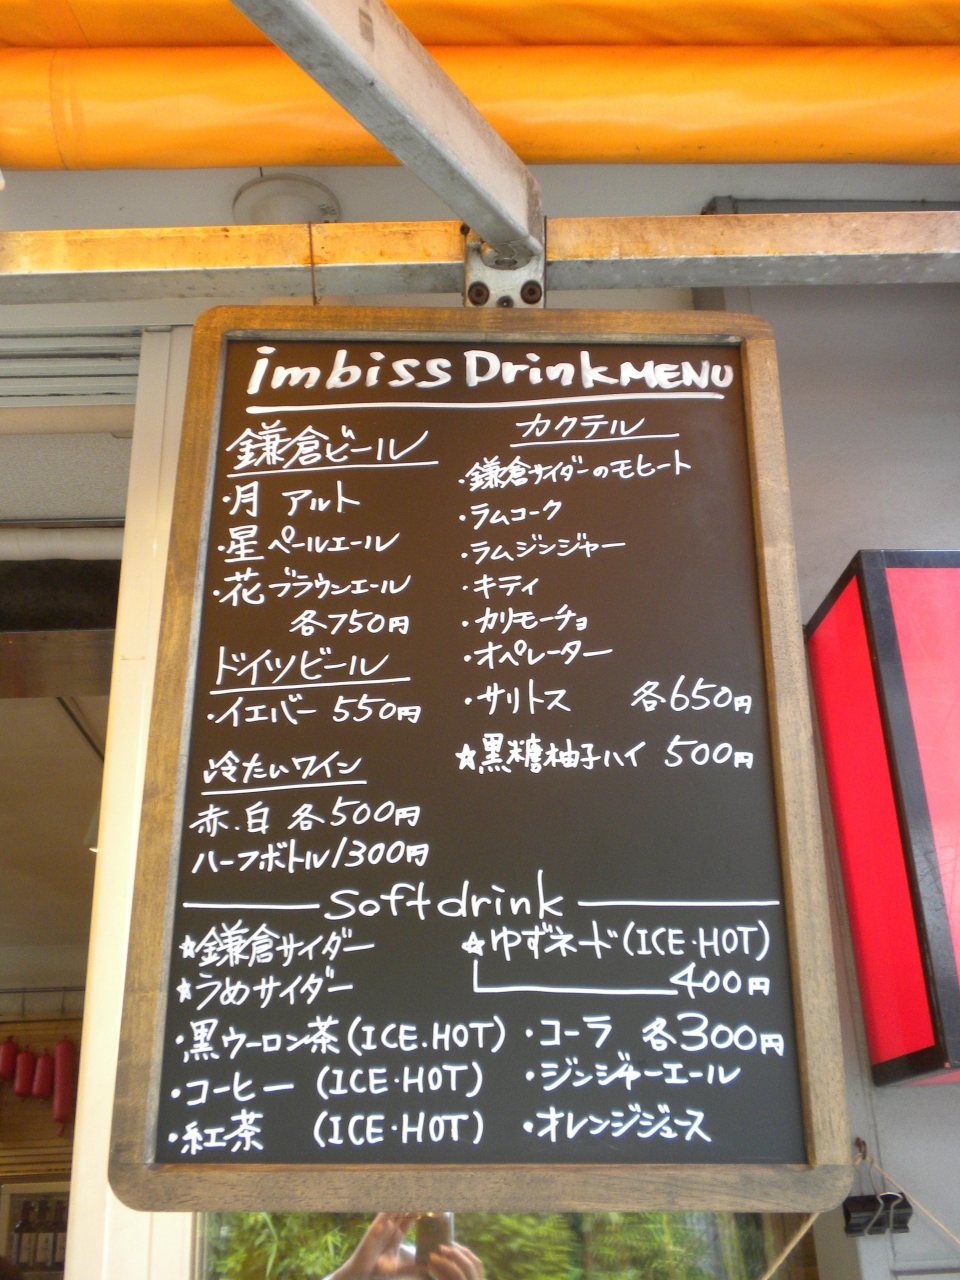 imbiss Drink MENU
鎌倉ビール
・月 アルト
・星 ペールエール
・花 ブラウンエール
各750円
ドイツビール
・イエバー 550円
冷たいワイン
赤.白 各500円
ハーフボトル1300円
カクテル
・鎌倉サイダーのモヒート
・ラムコーク
・ラムジンジャー
・キティ
・カリモーチョ
・オペレーター
・サリトス 各650円
☆黒糖柚子ハイ 500円
soft drink
☆鎌倉サイダー
☆うめサイダー
☆ゆずネード(ICE・HOT)
400円
・黒ウーロン茶(ICE.HOT)
・コーヒー (ICE・HOT)
・紅茶 (ICE・HOT)
・コーラ 各300円
・ジンジャーエール
・オレンジジュース